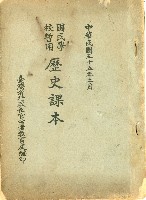 中華民國三十五年三月
國民學
校暫用
歷史課本
臺灣省行政長官公署教育處編印